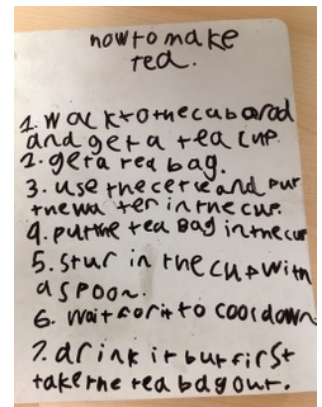 how to make
tea.
1. wack to the cubarod
and get a tea cup.
2. get a tea bag.
3. use the cetle and put
the wa ter in the cup.
4. put the tea bag in the cup
5. stur in the cup with
a spoon.
6. wait for it to cool down
7. drink it but first
take the tea bag out.